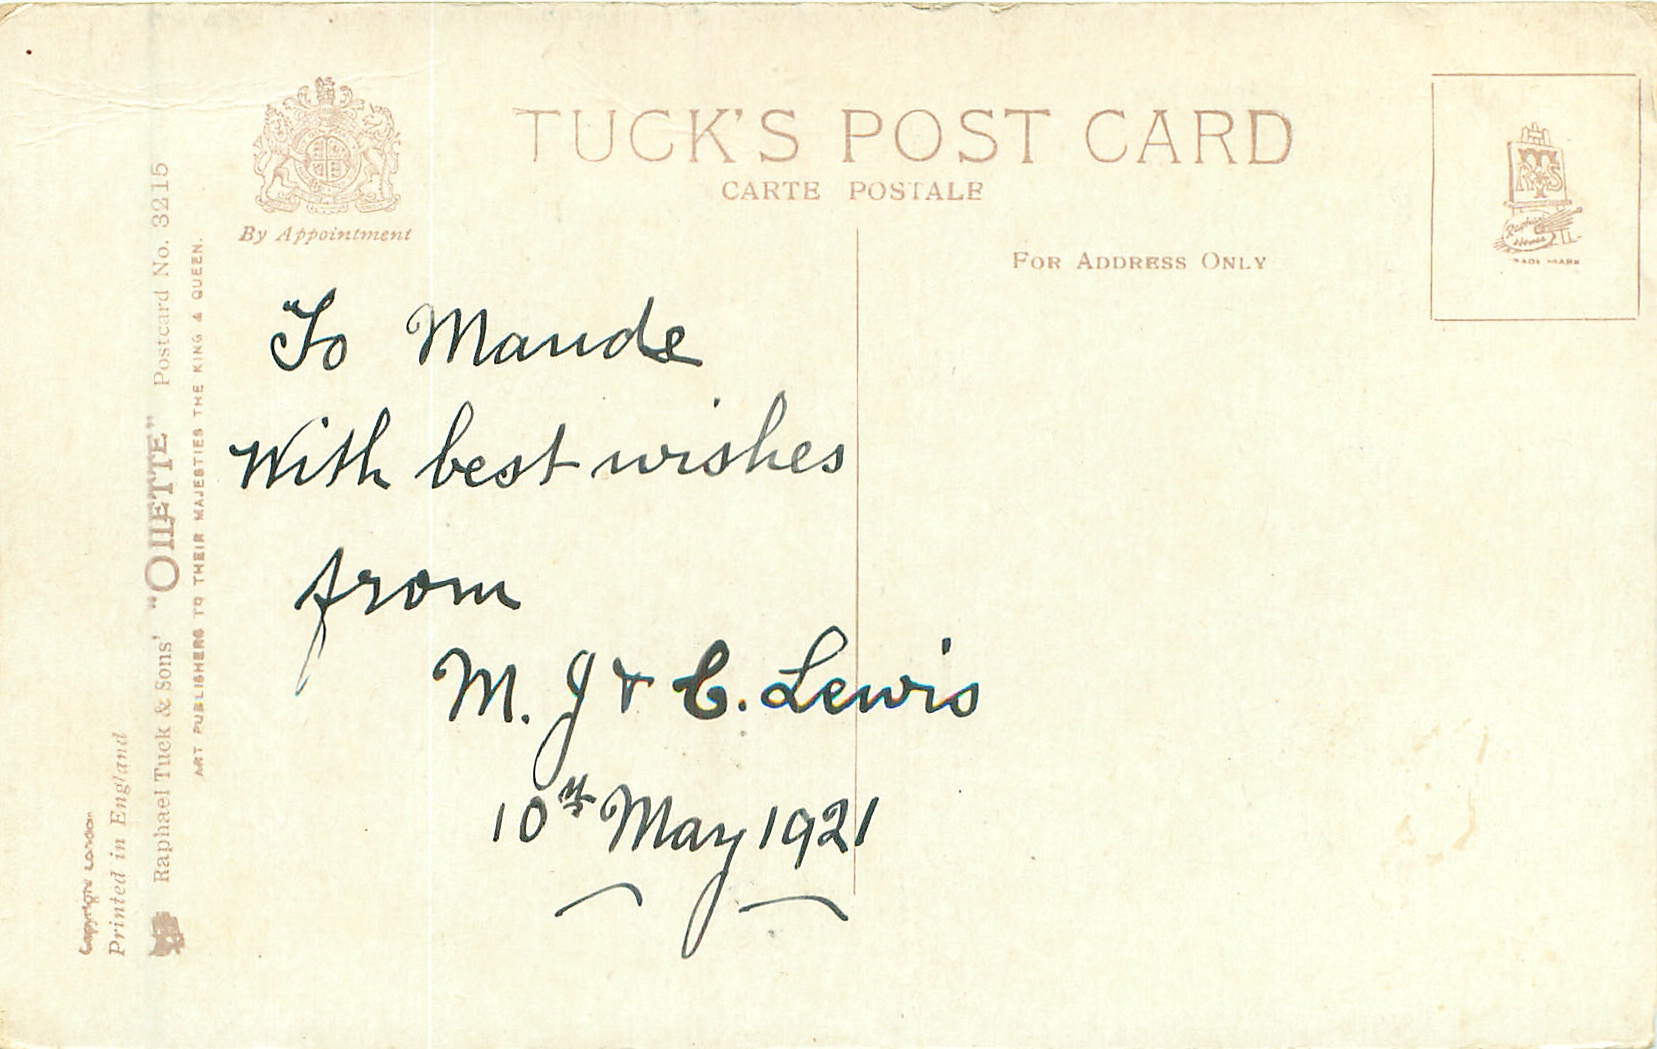 TUCK'S POST CARD
CARTE POSTALE
By Appointment
FOR ADDRESS ONLY
To Maude
With best wishes
from
M. J & C. Lewis
10th May 1921
Copyright London
Printed in England
Raphael Tuck & Sons' "OILETTE" Postcard No. 3215
ART PUBLISHERS TO THEIR MAJESTIES THE KING & QUEEN.
Raphael House
TRADE MARK